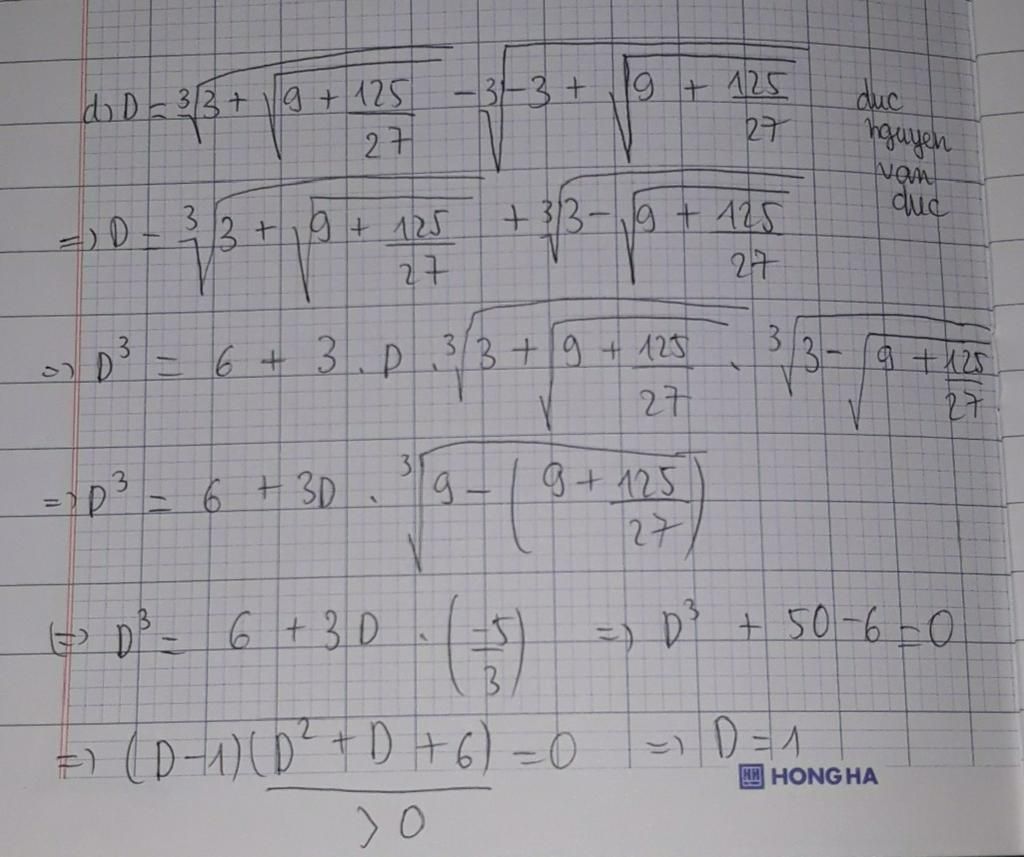 d, D = ∛(3 + √(9 + 125/27)) - ∛(-3 + √(9 + 125/27))
duc
nguyen
van
duc
=> D = ∛(3 + √(9 + 125/27)) + ∛(3 - √(9 + 125/27))
=> D³ = 6 + 3 . D . ∛(3 + √(9 + 125/27)) . ∛(3 - √(9 + 125/27))
=> D³ = 6 + 3D . ∛(9 - (9 + 125/27))
(=> D³ = 6 + 3D . (-5/3) => D³ + 5D - 6 = 0
=> (D-1)(D² + D + 6) = 0 => D = 1
> 0
HH HONG HA